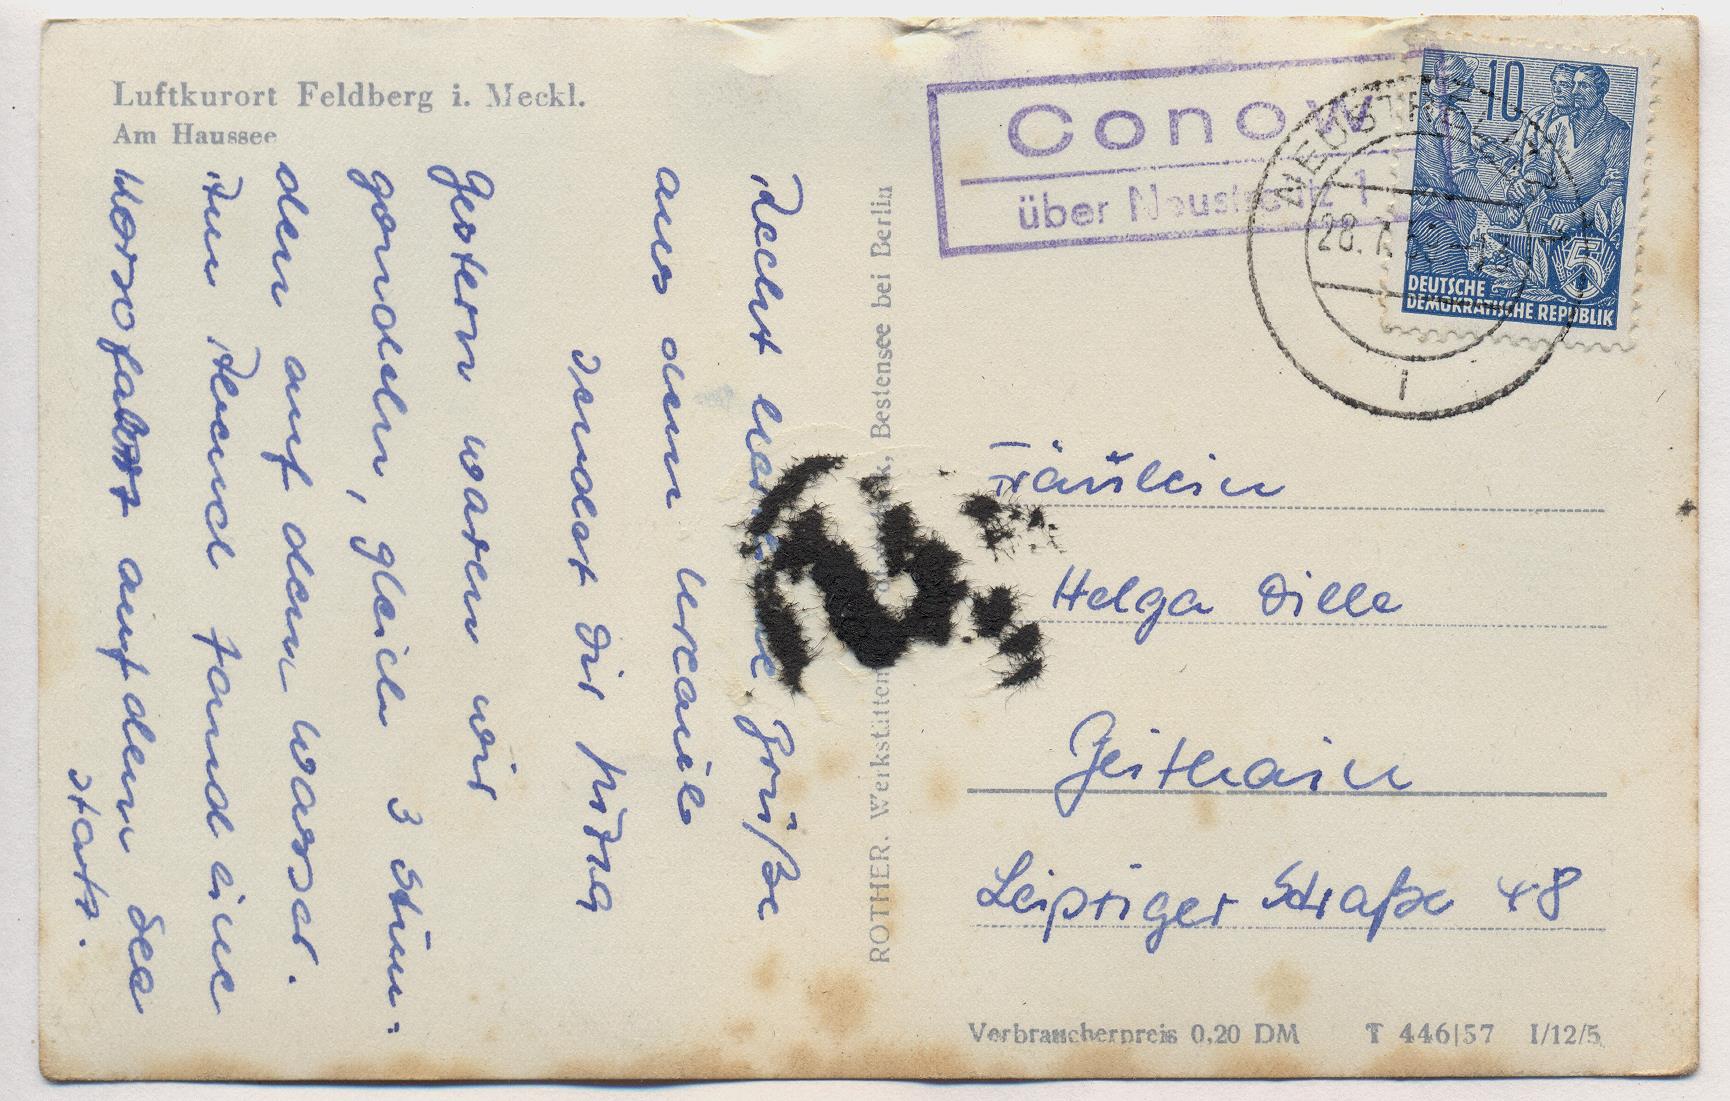 Luftkurort Feldberg i. Meckl.
Am Haussee
Recht herzliche Grüße
aus dem Urlaub
sendet Dir
Gestern waren wir
gondeln, gleich 3 Stun-
den auf dem Wasser.
Am Abend fand eine
Korsofahrt auf dem See
statt.
ROTHER, Werkstätten, Bestensee bei Berlin
Conow
über Neustrelitz 1
NEUSTRELITZ
28.7.
10
5
DEUTSCHE
DEMOKRATISCHE REPUBLIK
Fräulein
Helga Dille
Geithain
Leipziger Straße 48
Verbraucherpreis 0,20 DM T 446/57 I/12/5